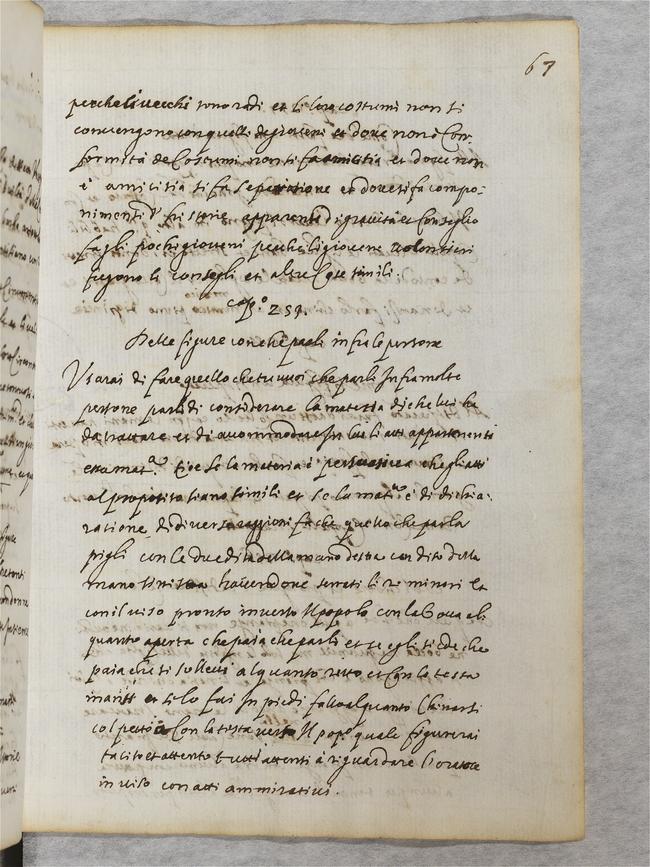 67
perche li vecchi sono radi et li loro costumi non si
convengono con quelli de gioveni et dove non è Con-
formità de Costumi non si fa amicitia et dove non
è amicitia si fa separatione et dove si fa compo-
nimenti d' historie apparenti di gravità et Conseglio
fagli pochi gioveni perche li giovene volontieri
fugono li consegli et altre Cose simili.
Cap.º 251.
Delle figure con che parli in fra le persone
Usarai di fare quello che tu vuoi che parli Infra molte
persone parli di considerare la materia di che lui ha
da trattare et di accommodare In lui li atti appartenenti
essa mat.ª Cioe se la materia è persuasiva che gli atti
al proposito siano simili et se la mat.ª è di dichia-
ratione di diverse raggioni fa che quello che parla
pigli con le due dita della mano destra un dito della
mano sinistra havendone serrati li 2 minori et
con il viso pronto inverso Il popolo con la Bocca al-
quanto aperta che paia che parli et se egli siede che
paia che si sollevi alquanto ritto et Con la testa
inanti et se lo fai In piedi fallo alquanto Chinarsi
col petto Con la testa verso Il pop.º quale figurerai
tacito et attento tutti attenti à riguardare L'oratore
in viso con atti ammirativi.